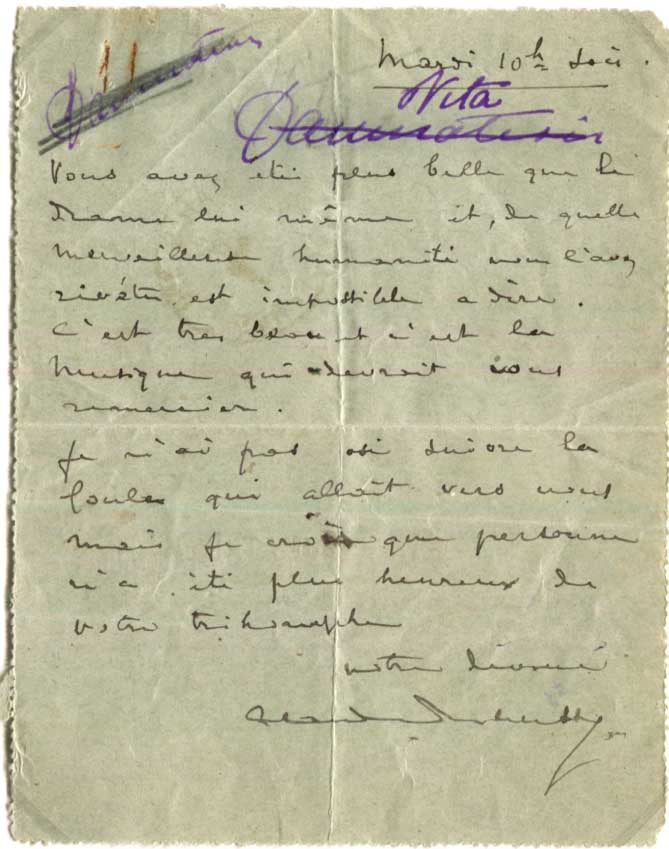 Mardi 10h soir.
Vita
Vous avez été plus belle que le
drame lui même et, de quelle
merveilleuse humanité vous l'avez
revêtu est impossible a dire.
C'est très beau et c'est la
musique qui devrait vous
remercier.
Je n'ai pas osé suivre la
foule qui allait vers vous
mais je crois que personne
n'a été plus heureux de
votre trihomphe
votre dévoué
Claude Debussy